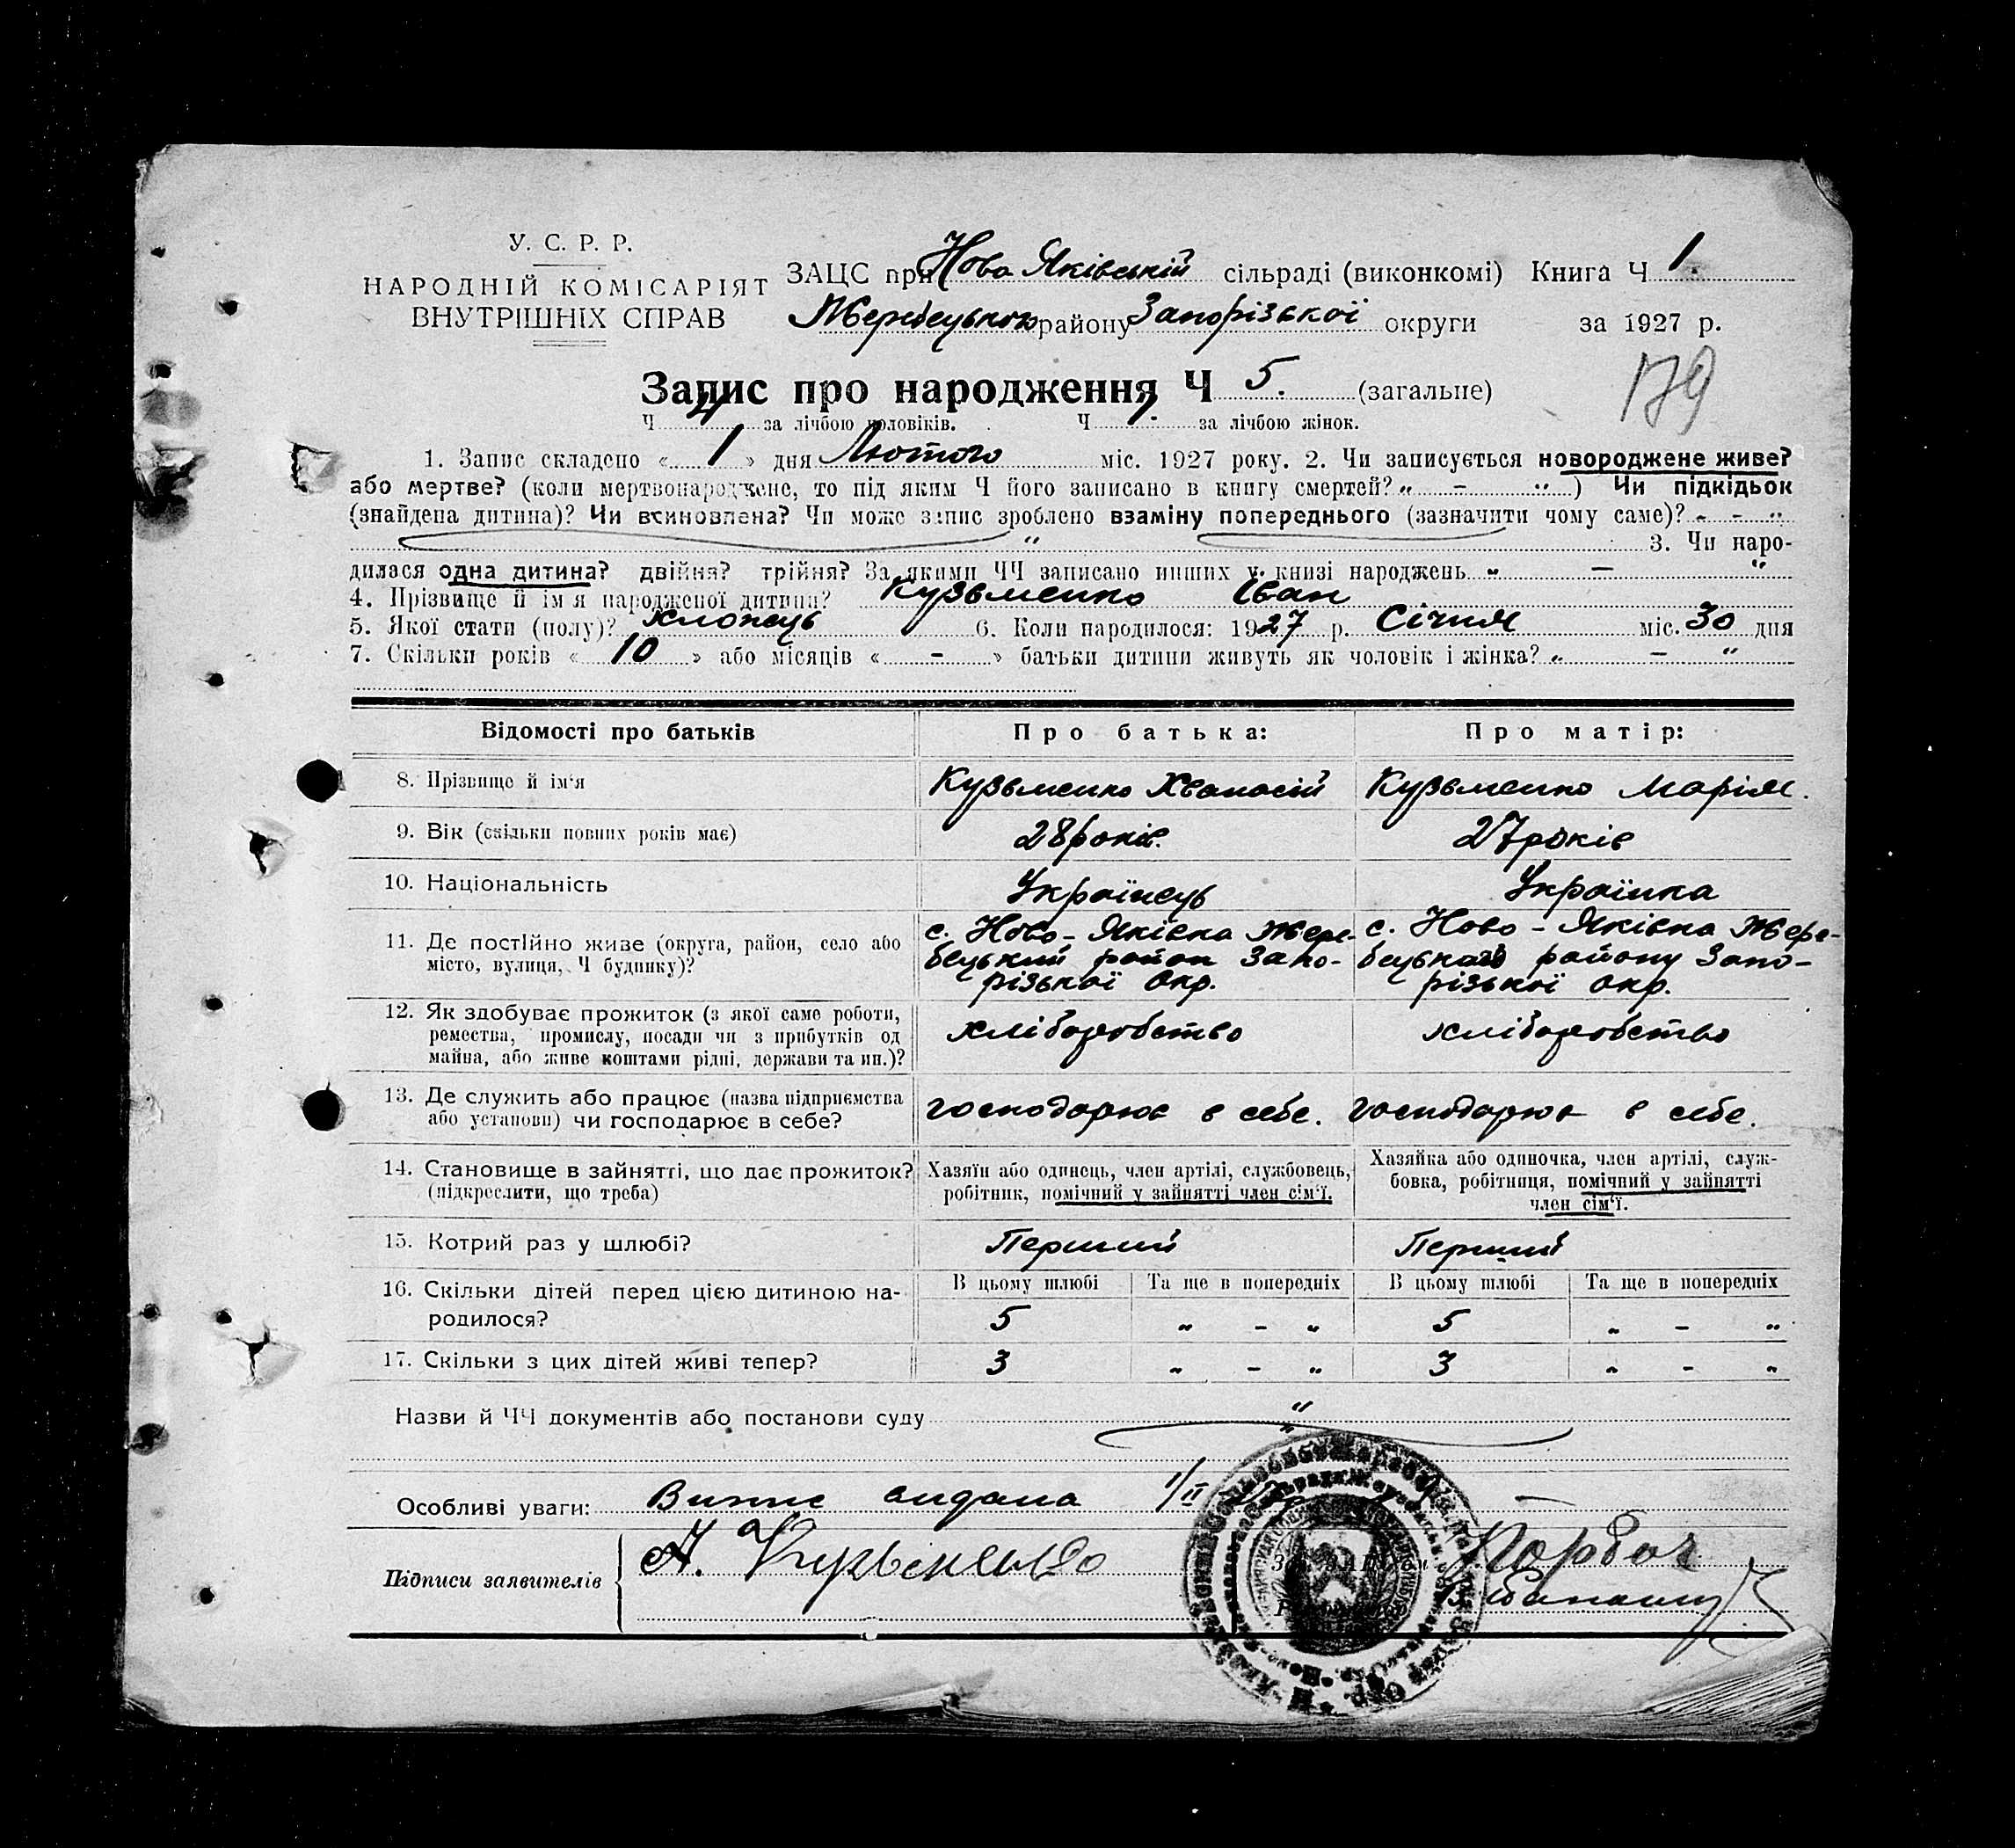 У. С. Р. Р.
НАРОДНІЙ КОМІСАРІЯТ
ВНУТРІШНІХ СПРАВ
ЗАЦС при Ново Яківській сільраді (виконкомі) Книга Ч 1.
Жеребецького району Запорізької округи за 1927 р.
179
Запис про народження Ч 5. (загальне)
Ч 4 за лічбою чоловіків. Ч за лічбою жінок.
1. Запис складено « 1 » дня Лютого міс. 1927 року. 2. Чи записується новороджене живе?
або мертве? (коли мертвонароджене, то під яким Ч його записано в книгу смертей? „ – “ ) Чи підкідьок
(знайдена дитина)? Чи всиновлена? Чи може запис зроблено взаміну попереднього (зазначити чому саме)? „ - “
„ 3. Чи наро-
дилася одна дитина? двійня? трійня? За якими ЧЧ записано инших у книзі народжень „ – “
4. Прізвище й ім'я народженої дитини? Кузьменко Іван
5. Якої стати (полу)? хлопець 6. Коли народилося: 1927 р. Січня міс. 30 дня
7. Скільки років « 10 » або місяців « - » батьки дитини живуть як чоловік і жінка? „ – “
Відомості про батьків Про батька: Про матір:
8. Прізвище й ім'я Кузьменко Хванасій Кузьменко Марія.
9. Вік (скільки повних років має) 28 років. 27 років
10. Національність Українець Українка
11. Де постійно живе (округа, район, село або
місто, вулиця, Ч будинку)?
с. Ново-Яківка Жере-
бецький район Запо-
різької окр.
с. Ново-Яківка Жере-
бецького району Запо-
різької окр.
12. Як здобуває прожиток (з якої саме роботи,
ремества, промислу, посади чи з прибутків од
майна, або живе коштами рідні, держави та ин.)?
хліборобство хліборобство
13. Де служить або працює (назва підприємства
або установи) чи господарює в себе?
господарює в себе. господарює в себе.
14. Становище в зайнятті, що дає прожиток?
(підкреслити, що треба)
Хазяїн або одинець, член артілі, службовець,
робітник, помічний у зайнятті член сім'ї.
Хазяйка або одиночка, член артілі, служ-
бовка, робітниця, помічний у зайнятті
член сім'ї.
15. Котрий раз у шлюбі? Перший Перший
16. Скільки дітей перед цією дитиною на-
родилося?
В цьому шлюбі Та ще в попередніх В цьому шлюбі Та ще в попередніх
5 „ - „ 5 „ - „
17. Скільки з цих дітей живі тепер? 3 „ - „ 3 „ - „
Назви й ЧЧ документів або постанови суду „
Особливі уваги: Випис видана 1/II
Підписи заявителів А. Кузьменко